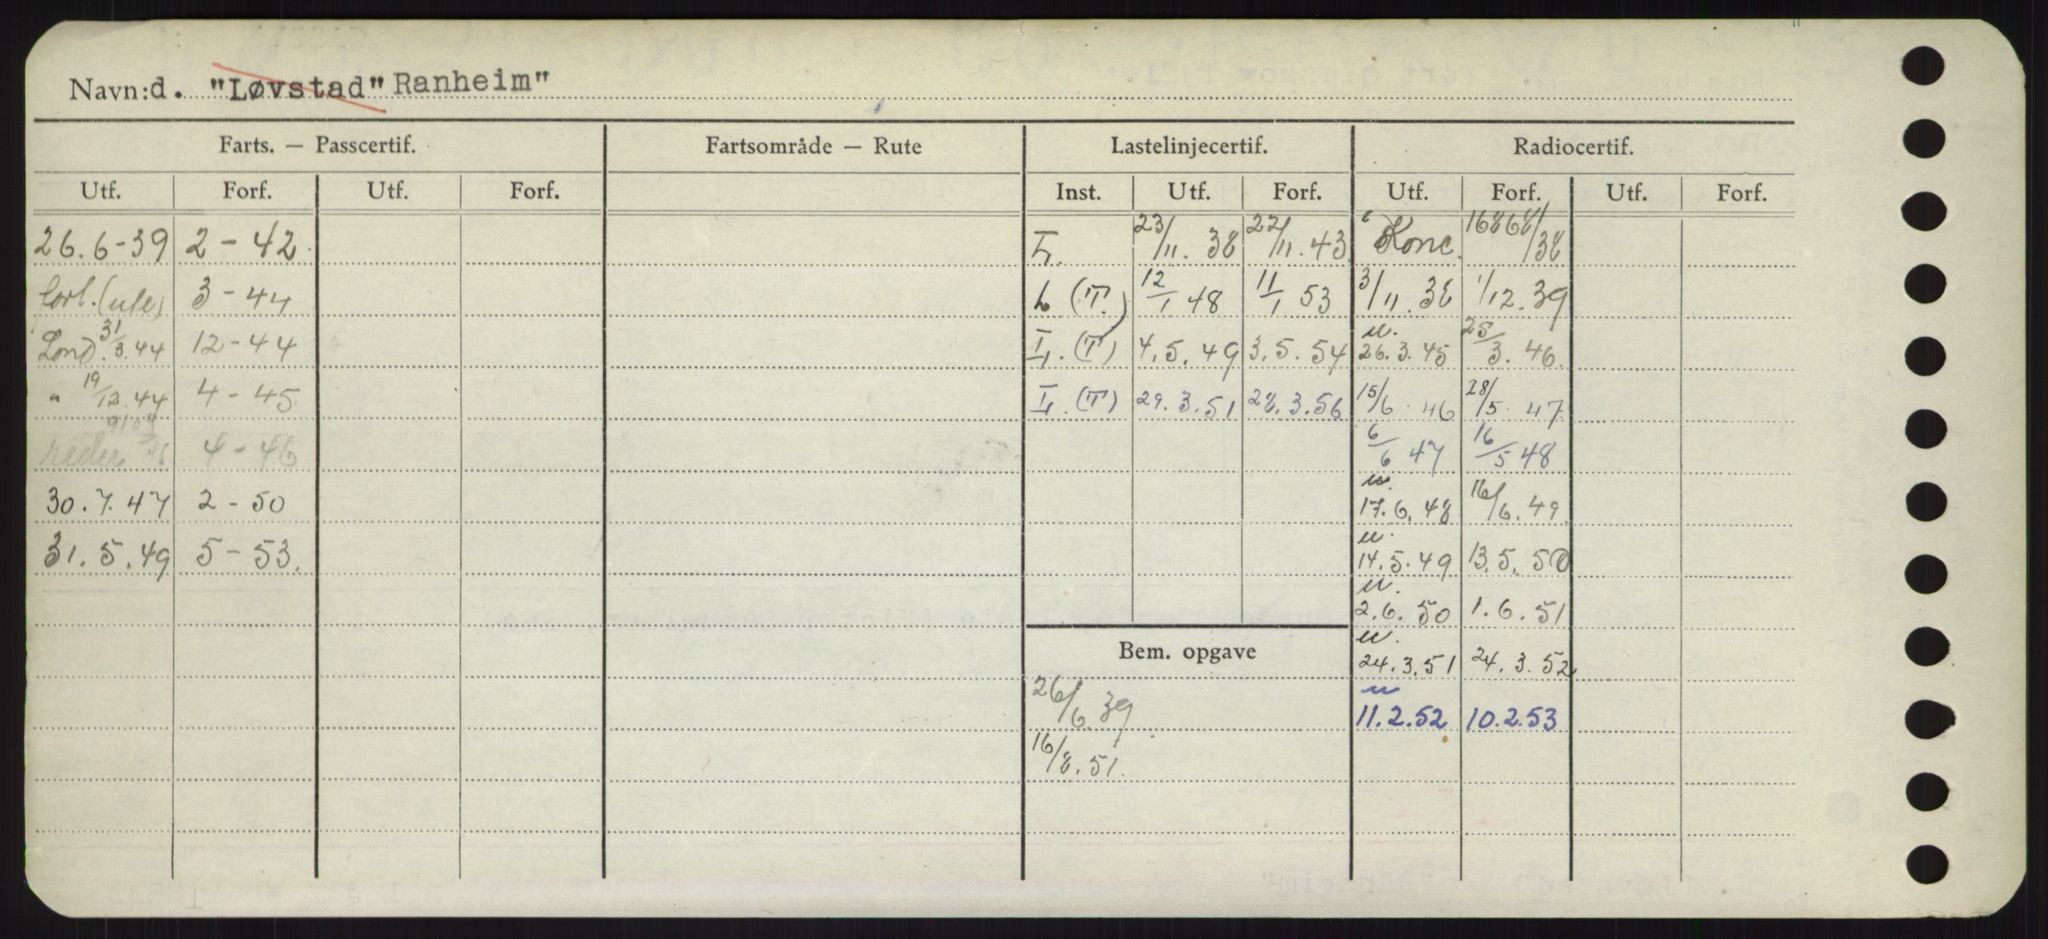 Navn: d. "Løvstad" Ranheim"
Farts. — Passcertif. Fartsområde — Rute Lastelinjecertif. Radiocertif.
Utf. Forf. Utf. Forf. Inst. Utf. Forf. Utf. Forf. Utf. Forf.
26.6-39 2-42. L. 23/11. 38 22/11. 43 Konc. 16868/38
forl. (ute) 3-44 L (T.) 12/1 48 11/1 53 3/11. 38 1/12. 39
Lond. 31/3.44 12-44 L. (T) 4.5.49 3.5.54 u. 26.3.45 25/3. 46.
" 19/12.44 4-45 L. (T) 29.3.51 28.3.56 15/6. 46 28/5. 47
4-46 6/6 47 16/5 48
30.7.47 2-50 u. 17.6.48 16/6.49.
31.5.49 5-53. u. 14.5.49 13.5.50
u. 2.6.50 1.6.51
Bem. opgave u. 24.3.51 24.3.52
26/6.39 u 11.2.52 10.2.53
16/8.51.